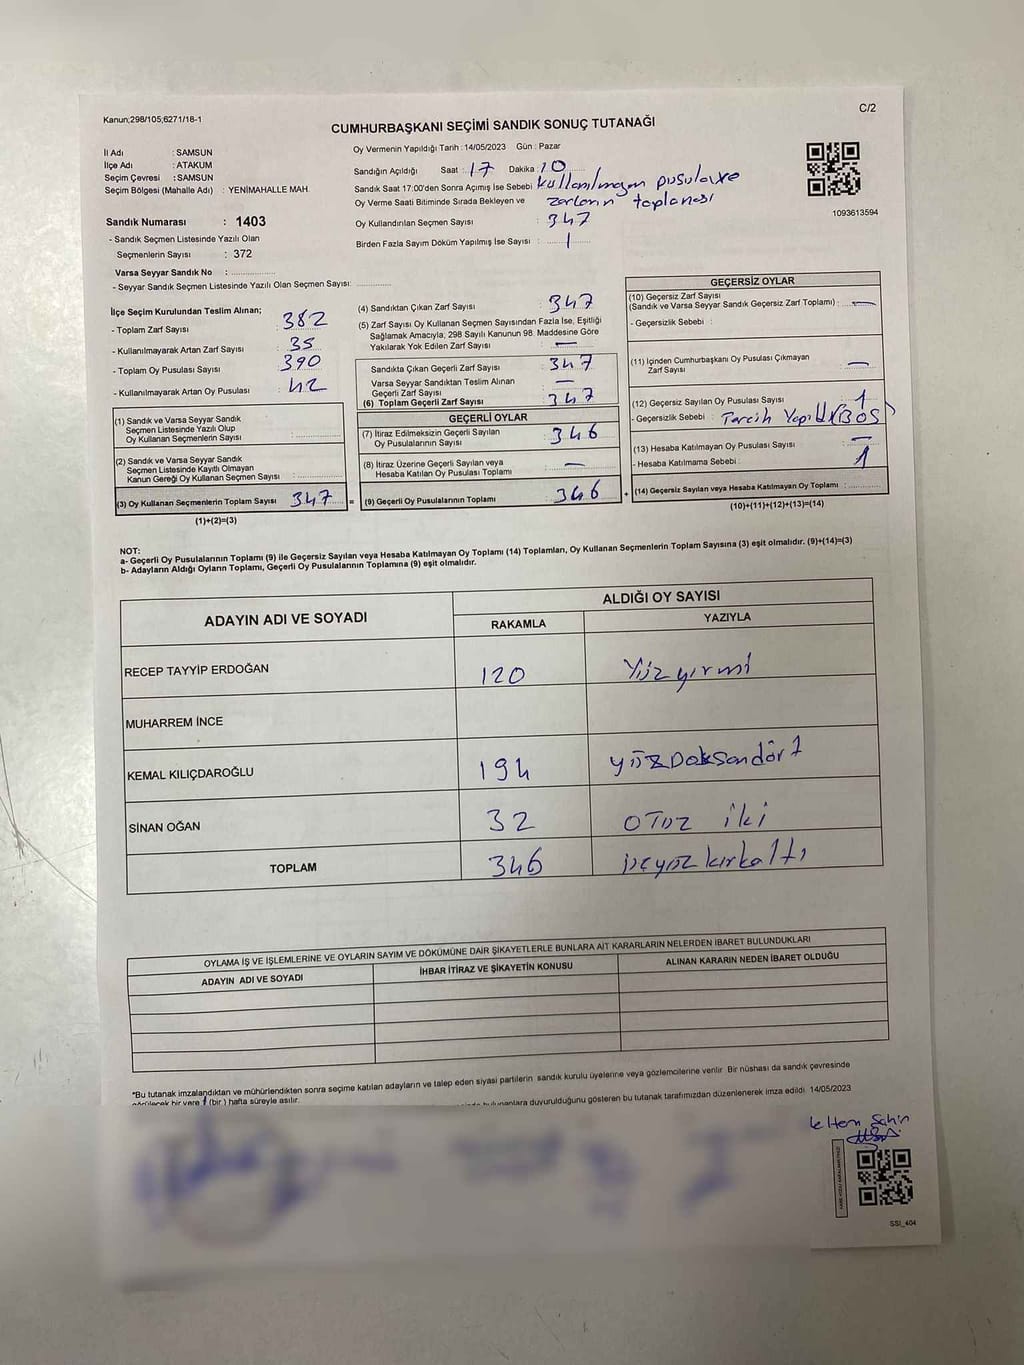 Kanun;298/105;6271/18-1
C/2
CUMHURBAŞKANI SEÇİMİ SANDIK SONUÇ TUTANAĞI
İl Adı : SAMSUN
İlçe Adı : ATAKUM
Seçim Çevresi : SAMSUN
Seçim Bölgesi (Mahalle Adı) : YENİMAHALLE MAH.
Sandık Numarası : 1403
- Sandık Seçmen Listesinde Yazılı Olan
Seçmenlerin Sayısı : 372
Varsa Seyyar Sandık No :
- Seyyar Sandık Seçmen Listesinde Yazılı Olan Seçmen Sayısı:
Oy Vermenin Yapıldığı Tarih : 14/05/2023 Gün : Pazar
Sandığın Açıldığı Saat : 17 Dakika : 10
Sandık Saat 17:00'den Sonra Açımış İse Sebebi kullanılmayan pusula ve
Oy Verme Saati Bitiminde Sırada Bekleyen ve zarların toplanası
Oy Kullandırılan Seçmen Sayısı : 347
Birden Fazla Sayım Döküm Yapılmış İse Sayısı : 1
1093613594
İlçe Seçim Kurulundan Teslim Alınan;
- Toplam Zarf Sayısı : 382
- Kullanılmayarak Artan Zarf Sayısı : 35
- Toplam Oy Pusulası Sayısı : 390
- Kullanılmayarak Artan Oy Pusulası : 42
(1) Sandık ve Varsa Seyyar Sandık
Seçmen Listesinde Yazılı Olup
Oy Kullanan Seçmenlerin Sayısı :
(2) Sandık ve Varsa Seyyar Sandık
Seçmen Listesinde Kayıtlı Olmayan
Kanun Gereği Oy Kullanan Seçmen Sayısı :
(3) Oy Kullanan Seçmenlerin Toplam Sayısı 347 =
(1)+(2)=(3)
(4) Sandıktan Çıkan Zarf Sayısı : 347
(5) Zarf Sayısı Oy Kullanan Seçmen Sayısından Fazla İse, Eşitliği
Sağlamak Amacıyla; 298 Sayılı Kanunun 98. Maddesine Göre
Yakılarak Yok Edilen Zarf Sayısı : —
Sandıkta Çıkan Geçerli Zarf Sayısı : 347
Varsa Seyyar Sandıktan Teslim Alınan
Geçerli Zarf Sayısı : —
(6) Toplam Geçerli Zarf Sayısı : 347
GEÇERLİ OYLAR
(7) İtiraz Edilmeksizin Geçerli Sayılan
Oy Pusulalarının Sayısı : 346
(8) İtiraz Üzerine Geçerli Sayılan veya
Hesaba Katılan Oy Pusulası Toplamı : —
(9) Geçerli Oy Pusulalarının Toplamı : 346 +
GEÇERSİZ OYLAR
(10) Geçersiz Zarf Sayısı
(Sandık ve Varsa Seyyar Sandık Geçersiz Zarf Toplamı) : —
- Geçersizlik Sebebi :
(11) İçinden Cumhurbaşkanı Oy Pusulası Çıkmayan
Zarf Sayısı : —
(12) Geçersiz Sayılan Oy Pusulası Sayısı : 1
- Geçersizlik Sebebi : Tercih (BOŞ)
(13) Hesaba Katılmayan Oy Pusulası Sayısı : —
- Hesaba Katılmama Sebebi : 1
(14) Geçersiz Sayılan veya Hesaba Katılmayan Oy Toplamı :
(10)+(11)+(12)+(13)=(14)
NOT:
a- Geçerli Oy Pusulalarının Toplamı (9) ile Geçersiz Sayılan veya Hesaba Katılmayan Oy Toplamı (14) Toplamları, Oy Kullanan Seçmenlerin Toplam Sayısına (3) eşit olmalıdır. (9)+(14)=(3)
b- Adayların Aldığı Oyların Toplamı, Geçerli Oy Pusulalarının Toplamına (9) eşit olmalıdır.
ADAYIN ADI VE SOYADI
ALDIĞI OY SAYISI
RAKAMLA YAZIYLA
RECEP TAYYİP ERDOĞAN 120 Yüz yirmi
MUHARREM İNCE
KEMAL KILIÇDAROĞLU 194 yüzDoksandört
SİNAN OĞAN 32 OTuz iki
TOPLAM 346 üçyüzkırkaltı
OYLAMA İŞ VE İŞLEMLERİNE VE OYLARIN SAYIM VE DÖKÜMÜNE DAİR ŞİKAYETLERLE BUNLARA AİT KARARLARIN NELERDEN İBARET BULUNDUKLARI
ADAYIN ADI VE SOYADI İHBAR İTİRAZ VE ŞİKAYETİN KONUSU ALINAN KARARIN NEDEN İBARET OLDUĞU
*Bu tutanak imzalandıktan ve mühürlendikten sonra seçime katılan adayların ve talep eden siyasi partilerin sandık kurulu üyelerine veya gözlemcilerine verilir. Bir nüshası da sandık çevresinde
görülecek bir yere 1 (bir) hafta süreyle asılır.
bulunanlara duyurulduğunu gösteren bu tutanak tarafımızdan düzenlenerek imza edildi. 14/05/2023
Meltem Şahin
SSI_404